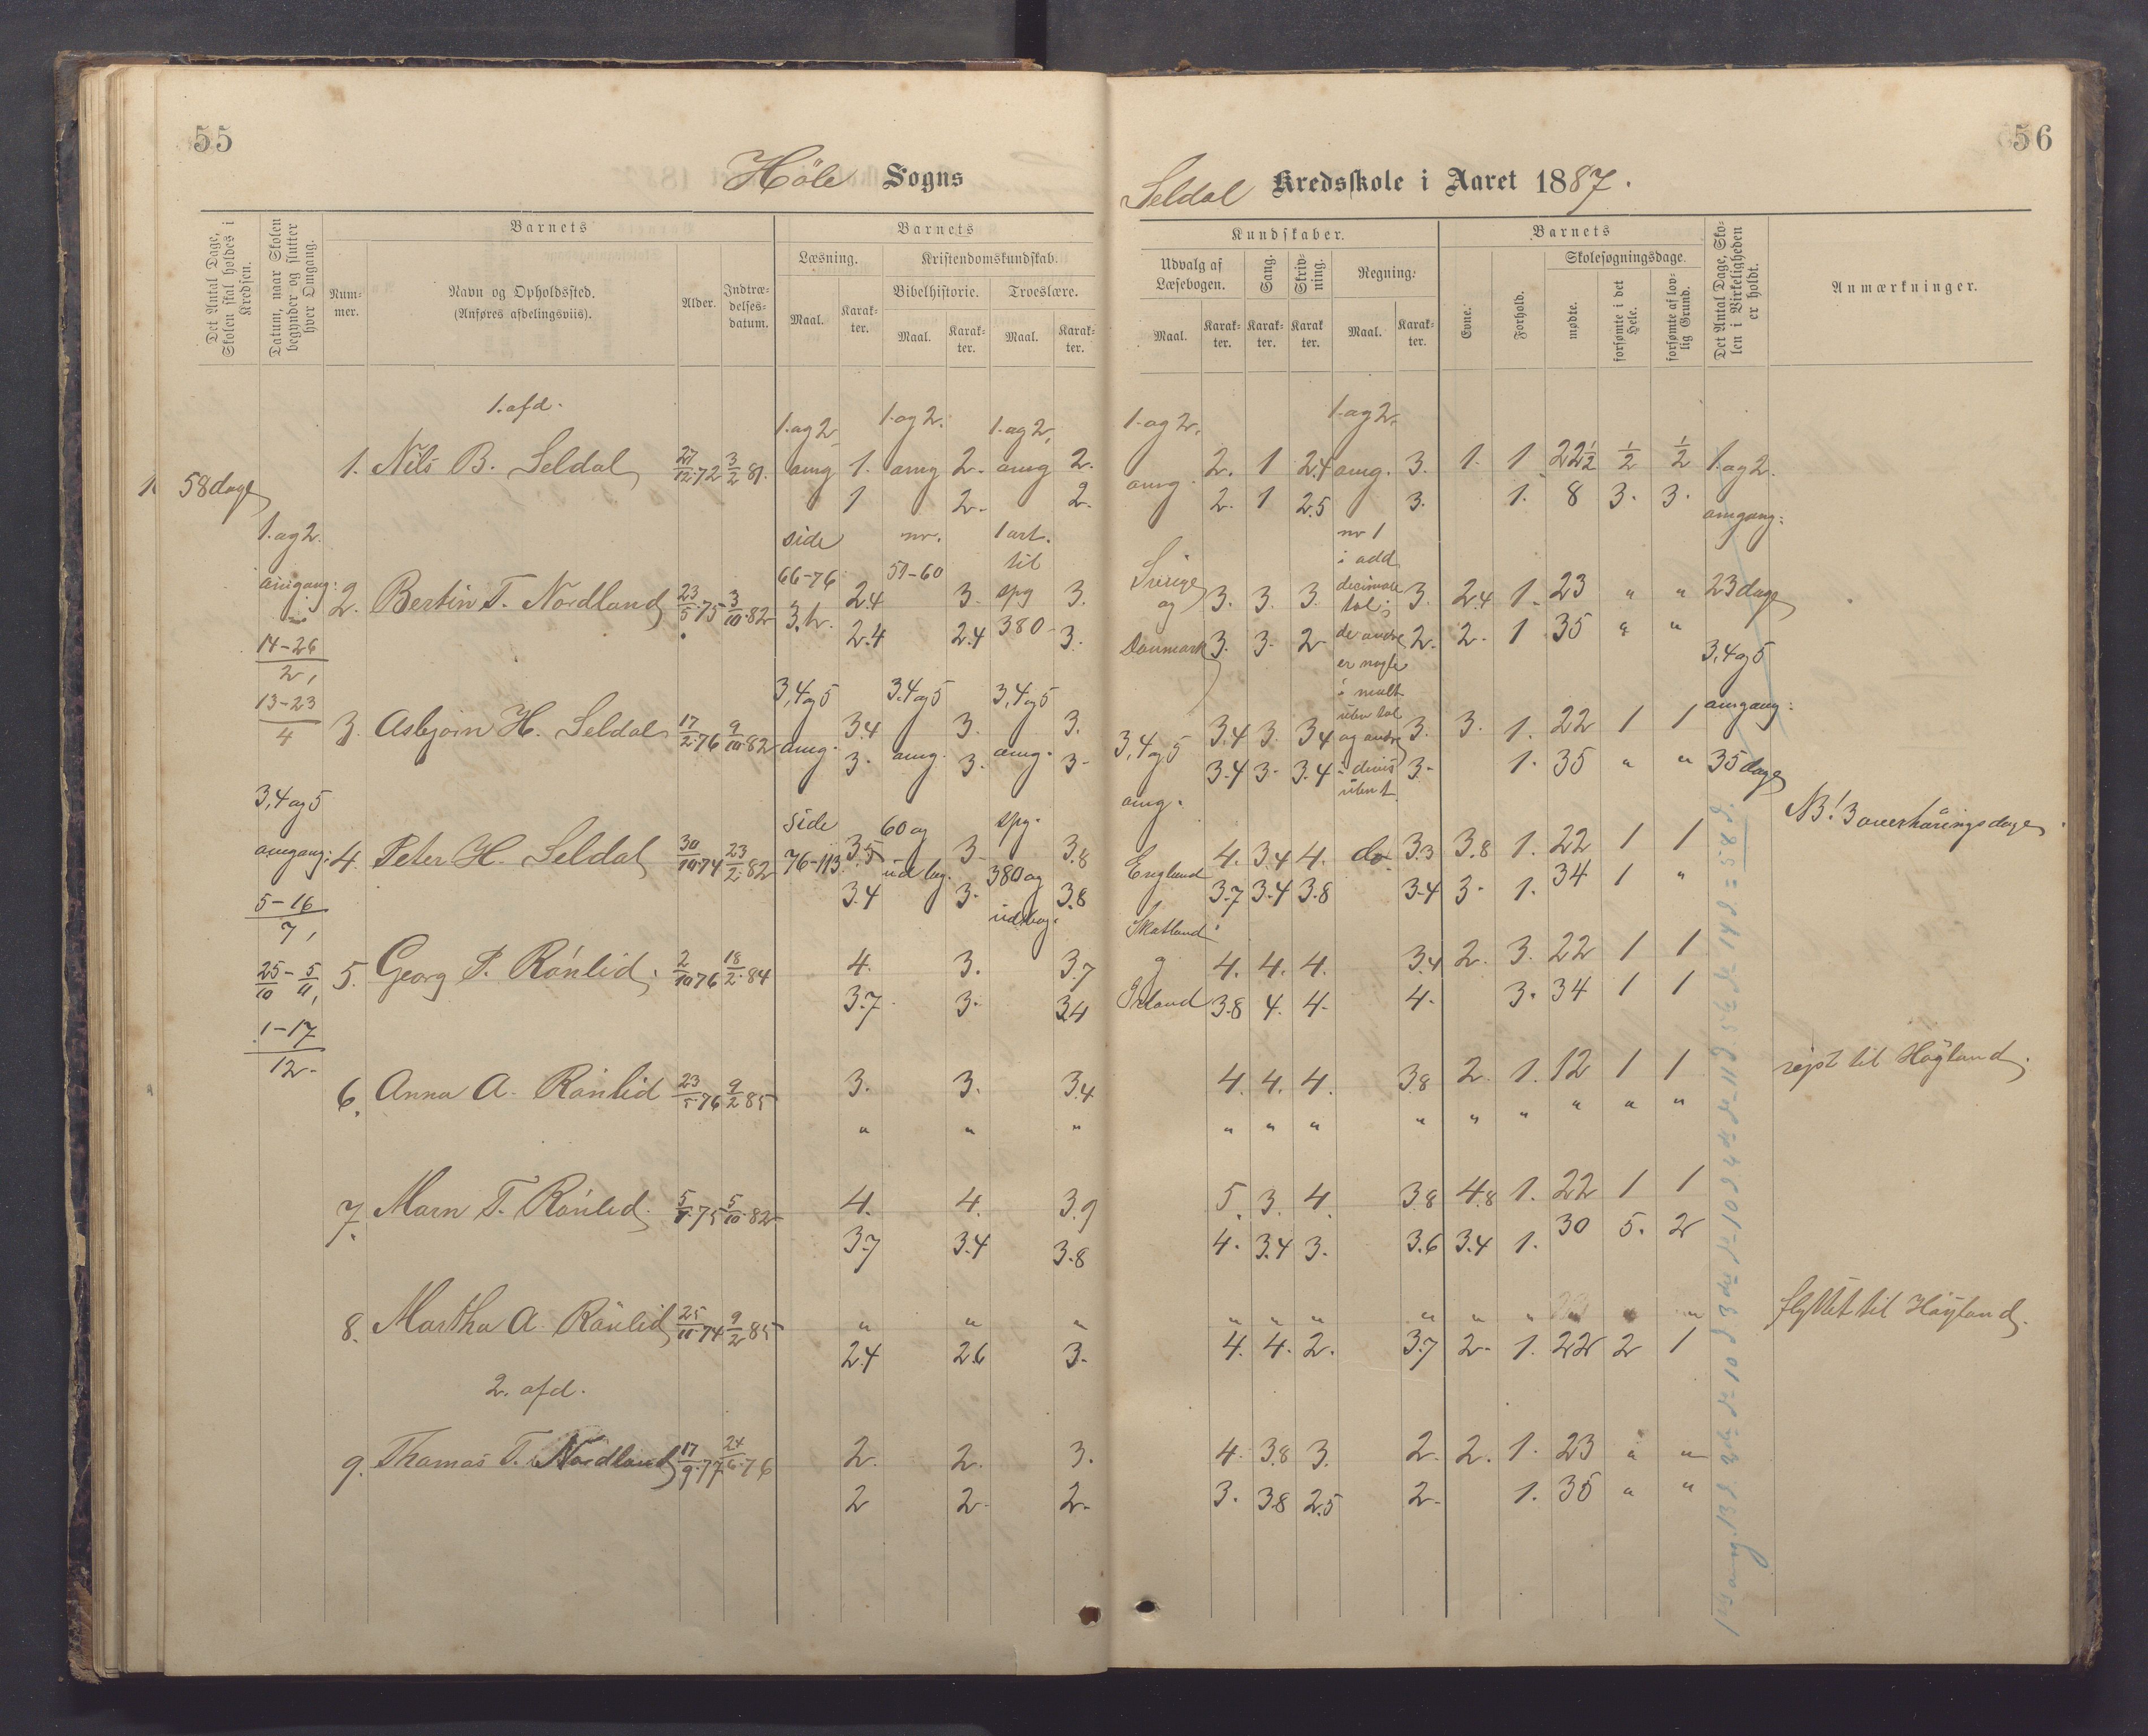 55
56
Höle Sogns
Seldal Kredsskole i Aaret 1887.
Det Antal Dage, Skolen skal holdes i Kredsen.
Datum, naar Skolen begynder og slutter hver Omgang.
Barnets
Barnets
Kundskaber.
Barnets
Det Antal Dage, Skolen i Virkeligheden er holdt.
Anmærkninger.
Nummer.
Navn og Opholdssted.
(Anføres afdelingsviis).
Alder.
Indtrædelsesdatum.
Læsning.
Kristendomskundskab.
Bibelhistorie.
Troeslære.
Maal.
Karakter.
Maal.
Karakter.
Maal.
Karakter.
Udvalg af Læsebogen.
Sang.
Skrivning.
Regning.
Maal.
Karakter.
Karakter.
Karakter.
Maal.
Karakter.
Evne.
Forhold.
Skolesøgningsdage.
mødte.
forsømte i det Hele.
forsømte af lovlig Grund.
1. afd.
1. og 2. 1. og 2. 1. og 2. 1. og 2. 1. og 2.
58 dage 1. Nils B. Seldal 27/12.72 3/2 81. omg 1. omg 2. omg 2. omg. 2. 1 2.4 omg. 3. 1. 1 22½ ½ ½ 1. og 2.
1 2. 2. 2. 1 2.5 3. 1. 8 3. 3. omgang:
1. og 2. side nr. 1 art. nr 1
omgang: 66-76 51-60 til Sverige i add.
2. Bertin T. Nordland 23/5.75 3/10.82 2.4 3. spg 3. og 3. 3. 3. 3. 2.4 1. 23 " " 23 dage
2.4 2.4 380 3. Danmark 3. 3. 2 2. 2. 1 35 " "
14-26/2, 3,4 og 5
13-23/4 3,4 og 5 3.4 og 5 3,4 og 5 omgang:
3. Asbjørn H. Seldal 17/2.76 9/10.82 omg. 3.4 omg. 3. omg. 3. 3,4 og 5 3.4 3. 3.4 3. 3. 1. 22 1 1
3. 3. 3. omg. 3.4 3. 3.4 3. 1. 35 " " 35 dage
3,4 og 5 side 60 og spg. NB! 3 overhøringsdage.
omgang: 4. Peter H. Seldal 30/10.74 23/2.82 76-113. 3.5 ud bog. 3. 380 og 3.8 England 4. 3.4 4. do 3.3 3.8 1. 22 1 1
3.4 3. ud bog. 3.8 3.7 3.4 3.8 3.4 3. 1. 34 1 "
5-16/7, Skotland
25/10 - 5/11, 5. Georg P. Rönlid. 2/10 76 18/2.84 4. 3. 3.7 og 4. 4. 4. 3.4 2. 3. 22 1 1
3.7 3. 3.4 Irland 3.8 4. 4. 4. 3. 34 1 1
1-17/12.
6. Anna A. Rönlid 23/5.76 9/2 85 3. 3. 3.4 4. 4. 4. 3.8 2. 1. 12 1 1 rejst til Høyland.
" " " " " " " " " " " "
7. Marn T. Rönlid. 75 5/10.82 4. 4. 3.9 5. 3. 4. 3.8 4.8 1. 22 1 1
3.7 3.4 3.8 4. 3.4 3. 3.6 3.4 1. 30 5. 2
8. Martha A. Rönlid 25/11.74 9/2 85 " " " " " " " " " " " " flyttet til Høyland.
2.4 2.6 3. 4. 4. 2. 3.7 2. 1. 22 2 1
2. afd.
9. Thomas T. Nordland 17/9.77 24/6.76 2. 2. 3. 4. 3.8 3. 2. 2. 1. 23 " "
2 2. 2. 3. 3.8 2.5 2. 1. 35 " "